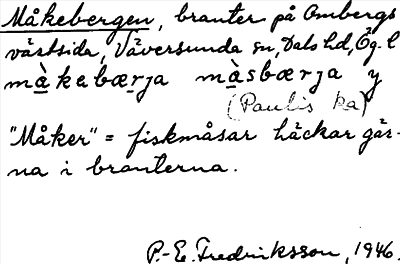 Måkebergen, branter på Ombergs
västsida, Väversunda sn, Dals hd, Ög. l
màkebærja màsbærja y
(Paulis ka)
"Måker" = fiskmåsar häckar gär-
na i branterna.
P.-E. Fredriksson, 1946.